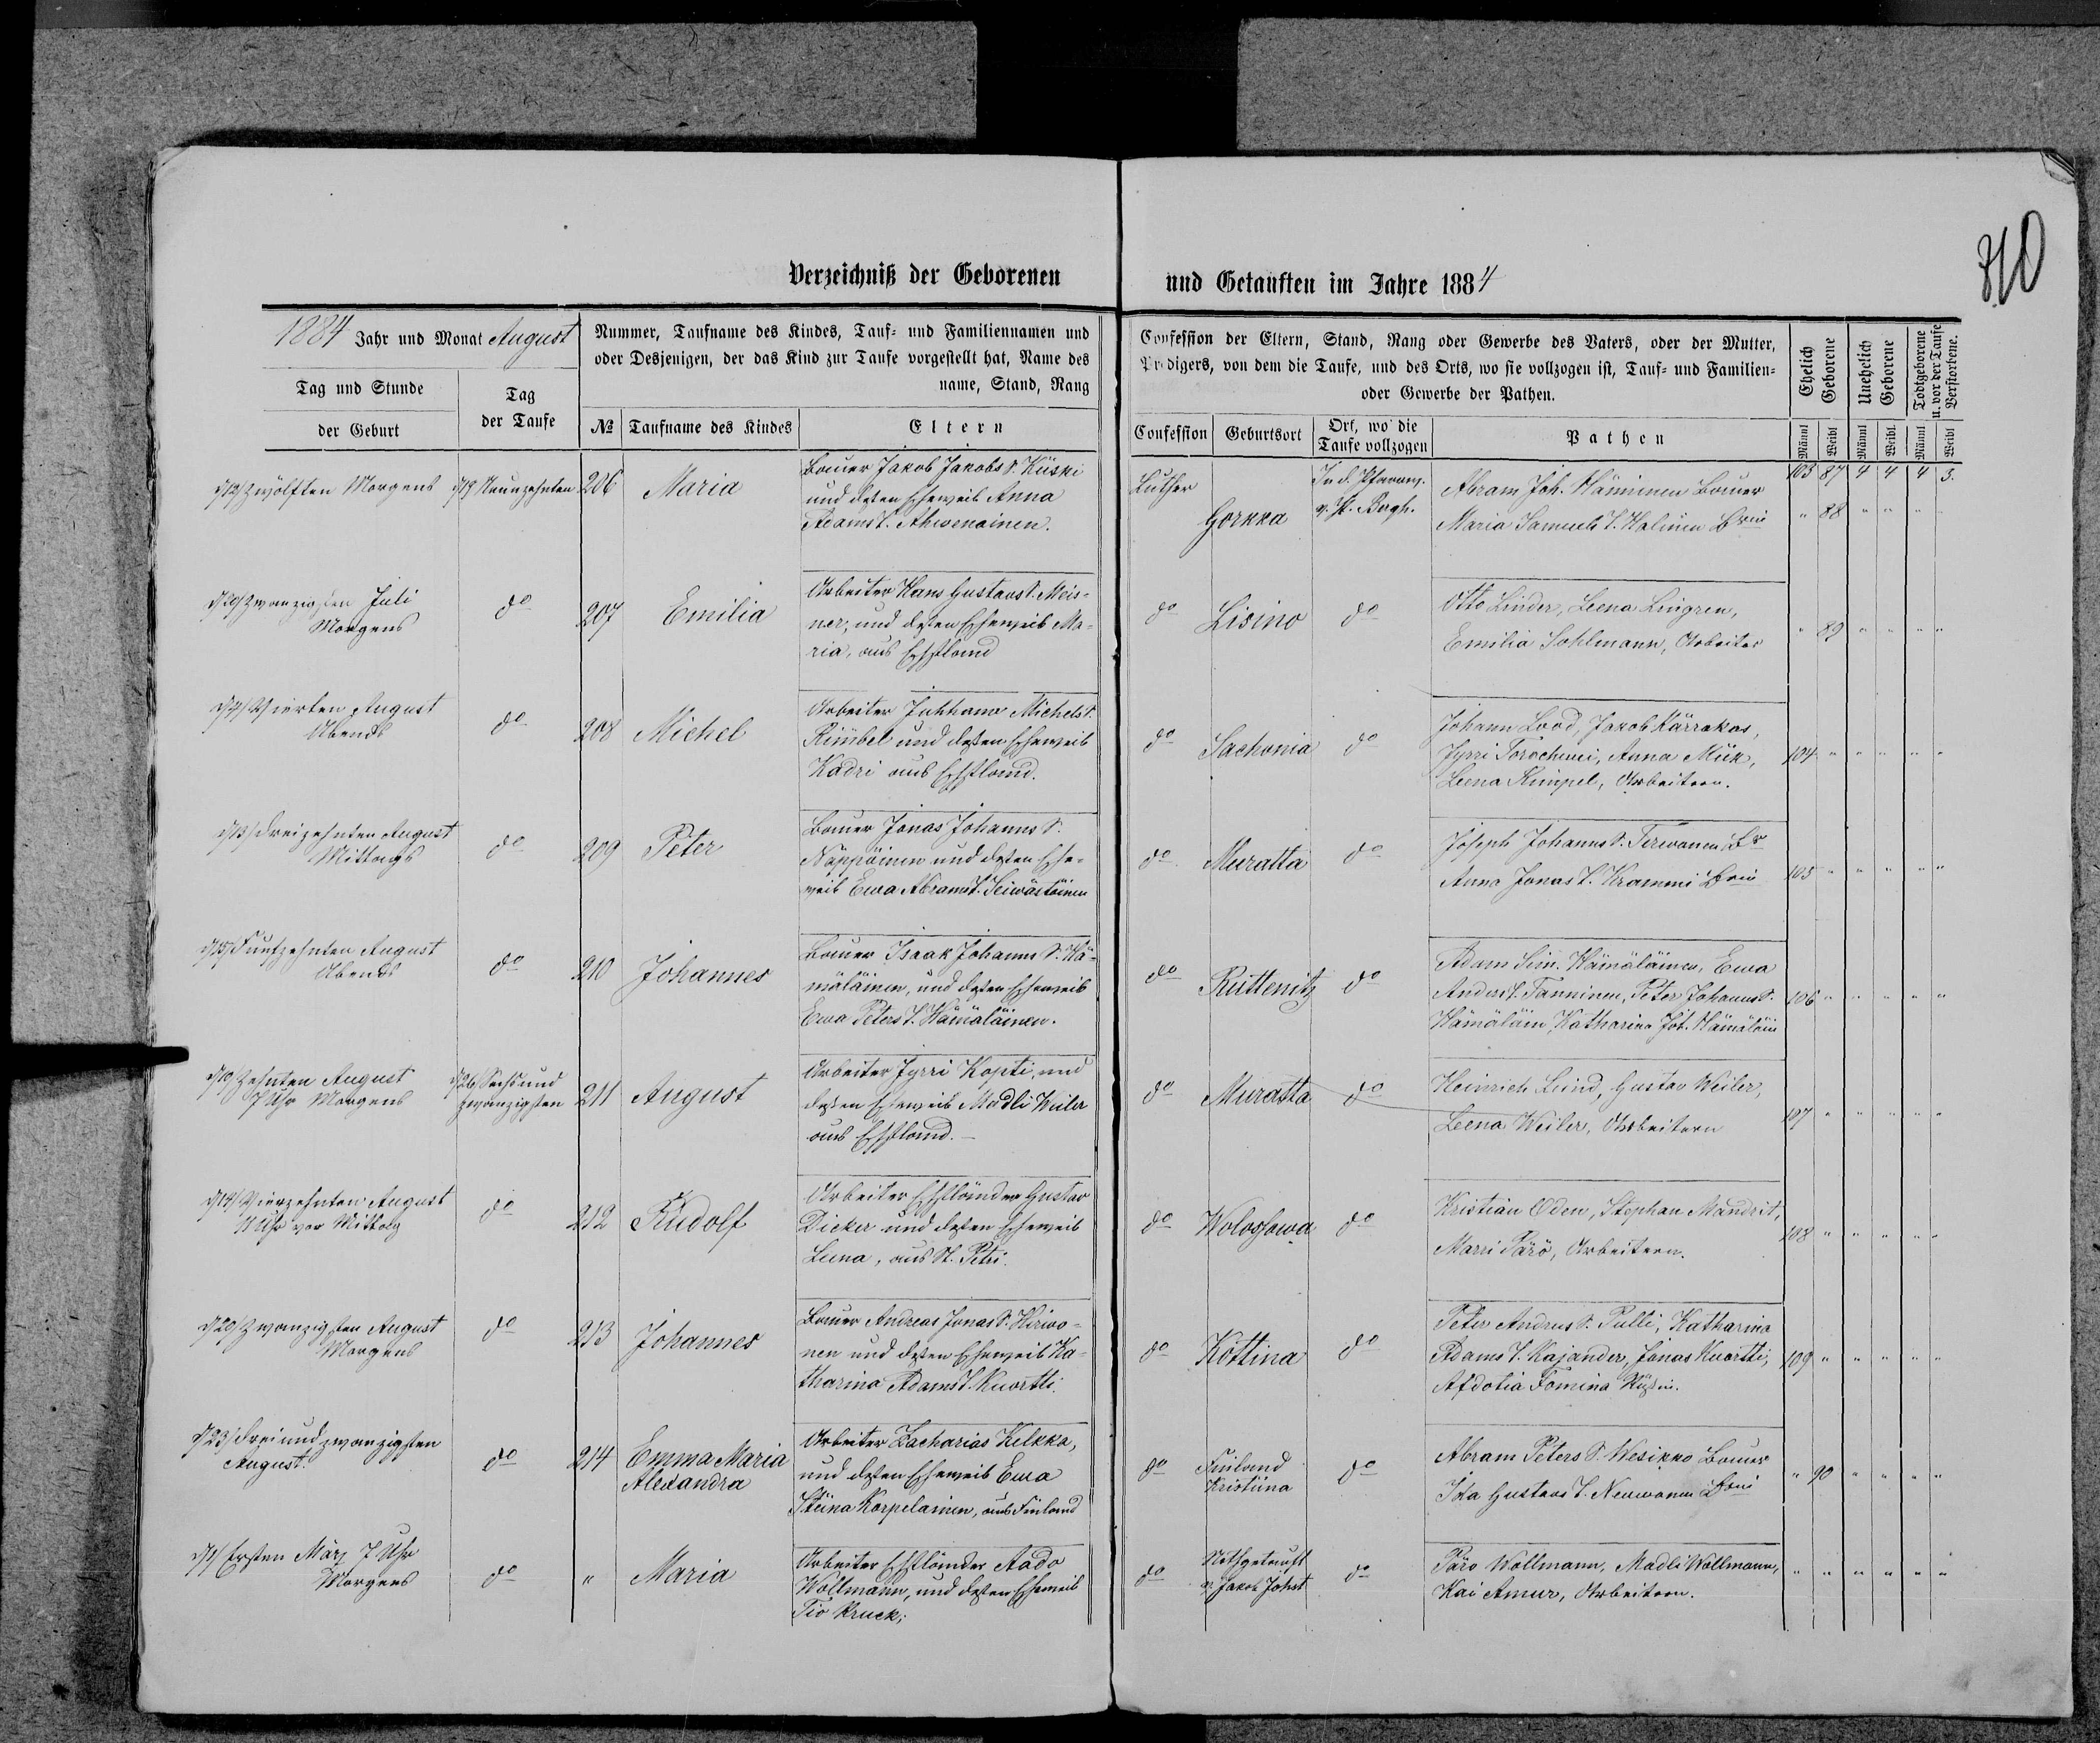 310
Verzeichniß der Geborenen und Getauften im Jahre 1884
1884 Jahr und Monat August
Tag und Stunde
der Geburt
Tag
der Taufe
Nummer, Taufname des Kindes, Tauf- und Familiennamen und
oder Desjenigen, der das Kind zur Taufe vorgestellt hat, Name des
name, Stand, Rang
№
Taufname des Kindes
Eltern
Confession der Eltern, Stand, Rang oder Gewerbe des Vaters, oder der Mutter,
Predigers, von dem die Taufe, und des Orts, wo sie vollzogen ist, Tauf- und Familien-
oder Gewerbe der Pathen.
Confession
Geburtsort
Ort, wo die
Taufe vollzogen
Pathen
Ehelich
Geborene
Unehelich
Geborene
Todtgeborene
u. vor der Taufe
Verstorbene.
Männl
Weibl
Männl
Weibl.
Männl
Weibl
d/12/ zwölften Morgens
d/19 Neunzehnten
206
Maria
Bauer Jakob Jakobs S. Küski
und dessen Eheweib Anna
Adams T. Ahwenainen.
Luther
Gorkka
In d. Pfarrw.
Abram Joh. Häminen Bauer
Maria Samuels T. Halinen Brin
103 87 4 4 4 3.
" 88 " " "
d/20/ zwanzigsten Juli
Morgens
do
207
Emilia
Arbeiter Hans Gustavs S. Meis-
ner, und dessen Eheweib Ma-
ria, aus Ehstland
do
Lisino
do
Otto Linder, Leena Lingren,
Emilia Sohlmann, Arbeiter
" 89 " " " "
d/4/ Vierten August
Abends
do
208
Michel
Arbeiter Juhhann Michels S.
Rimbel und dessen Eheweib
Kadri aus Ehstland.
do
Sachonia
do
Johann Lood, Jakob Kärrakas,
Jyrri Anna Mük,
Leena Rimpel, Arbeitern.
104 " " " " "
d/13/ dreizehnten August
Mittags
do
209
Peter
Bauer Jonas Johanns S.
Näppäinen und dessen Ehe-
weib Ewa Abrams T. Seiwästäinen
do
Muratta
do
Joseph Johanns S. Terwonen Br
Anna Jonas T. Krammi Brin
105 " " " " "
d/15/ Fünfzehnten August
Abends
do
210
Johannes
Bauer Isaak Johanns S. Hä-
mäläinen, und dessen Eheweib
Ewa Peters T. Hämäläinen.
do
Ruttenitz
do
Adam Sim. Hämäläinen, Ewa
Anders T. Tanninen, Peter Johanns S.
Hämäläin, Katharina Joh. Hämäläin
106 " " " " "
d/10/ Zehnten August
7 Uhr Morgens
d/26/ Sechsund
zwanzigsten
211
August
Arbeiter Jyrri Kopti, und
dessen Eheweib Madli Weiler
aus Ehstland.
do
Muratta
do
Heinrich Gustav Weiler,
Leena Weiler, Arbeitern
107 " " " " "
d/14/ Vierzehnten August
11 Uhr vor Mittag
do
212
Rudolf
Arbeiter Ehstländer Gustav
Dicker und dessen Eheweib
Leena, aus St. Petri.
do
Wolossowa
do
Kristian Oden, Stephan Mandrit,
Marri Pärö, Arbeitern.
108 " " " " "
d/20/ zwanzigsten August
Morgens
do
213
Johannes
Bauer Andreas Jonas S. Hirwo-
nen und dessen Eheweib Ka-
tharina Adams T. Kuortti.
do
Kottina
do
Peter Andreas S. Pulli, Katharina
Adams T. Kajander, Jonas Kuortti,
Afdotia Fomina
109 " " " " "
d/23/ dreiundzwanzigsten
August.
do
214
Emma Maria
Alexandra
Arbeiter Zacharias Kelkka,
und dessen Eheweib Ewa
Stiina Korpelainen, aus Finland
do
Finland
Kristiina
do
Abram Peters S. Wesikko Bauer
Ida Gustavs T. Neuwonen Brin
" 90 " " " "
d/1/ Ersten März 7 Uhr
Morgens
do
"
Maria
Arbeiter Ehstländer Aado
Wollmann, und dessen Eheweib
Tio Kruck;
do
Nothgetauft
v. Jakob Johst
do
Päro Wollmann, Madli Wollmann,
Kai Amur, Arbeitern.
" " " " " "